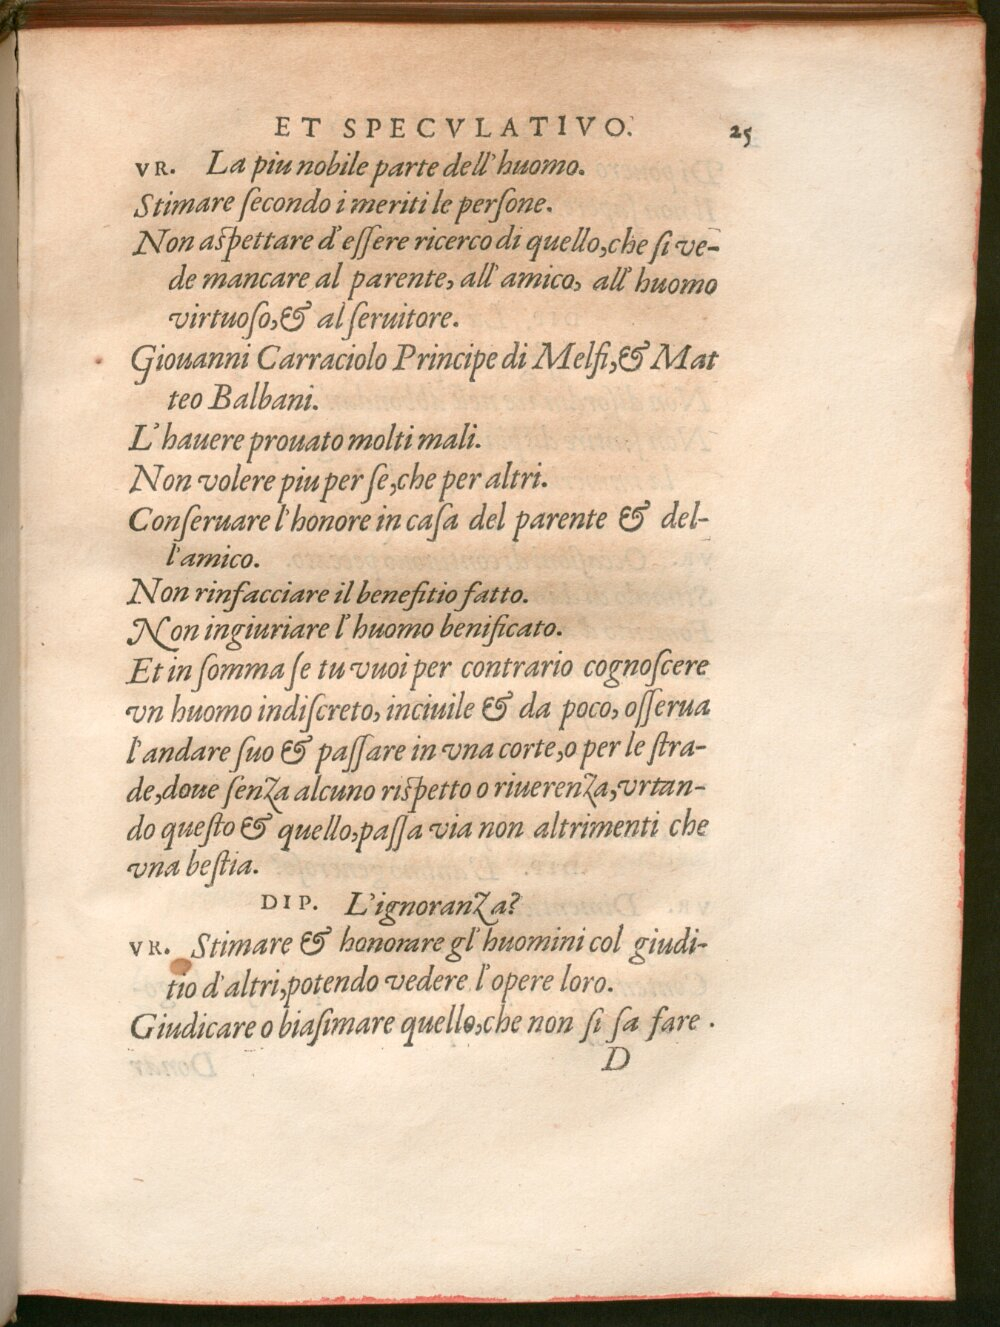 ET SPECVLATIVO. 25
VR. La piu nobile parte dell'huomo.
Stimare ſecondo i meriti le perſone.
Non aſpettare d'eſſere ricerco di quello, che ſi ve-
de mancare al parente, all'amico, all'huomo
virtuoſo, & al ſeruitore.
Giouanni Carraciolo Principe di Melfi, & Mat
teo Balbani.
L'hauere prouato molti mali.
Non volere piu per ſe, che per altri.
Conſeruare l'honore in caſa del parente & del-
l'amico.
Non rinfacciare il benefitio fatto.
Non ingiuriare l'huomo benificato.
Et in ſomma ſe tu vuoi per contrario cognoſcere
vn huomo indiſcreto, inciuile & da poco, oſſerua
l'andare ſuo & paſſare in vna corte, o per le ſtra-
de, doue ſenza alcuno riſpetto o riuerenza, vrtan-
do queſto & quello, paſſa via non altrimenti che
vna beſtia.
DIP. L'ignoranza?
VR. Stimare & honorare gl'huomini col giudi-
tio d'altri, potendo vedere l'opere loro.
Giudicare o biaſimare quello, che non ſi ſa fare.
D